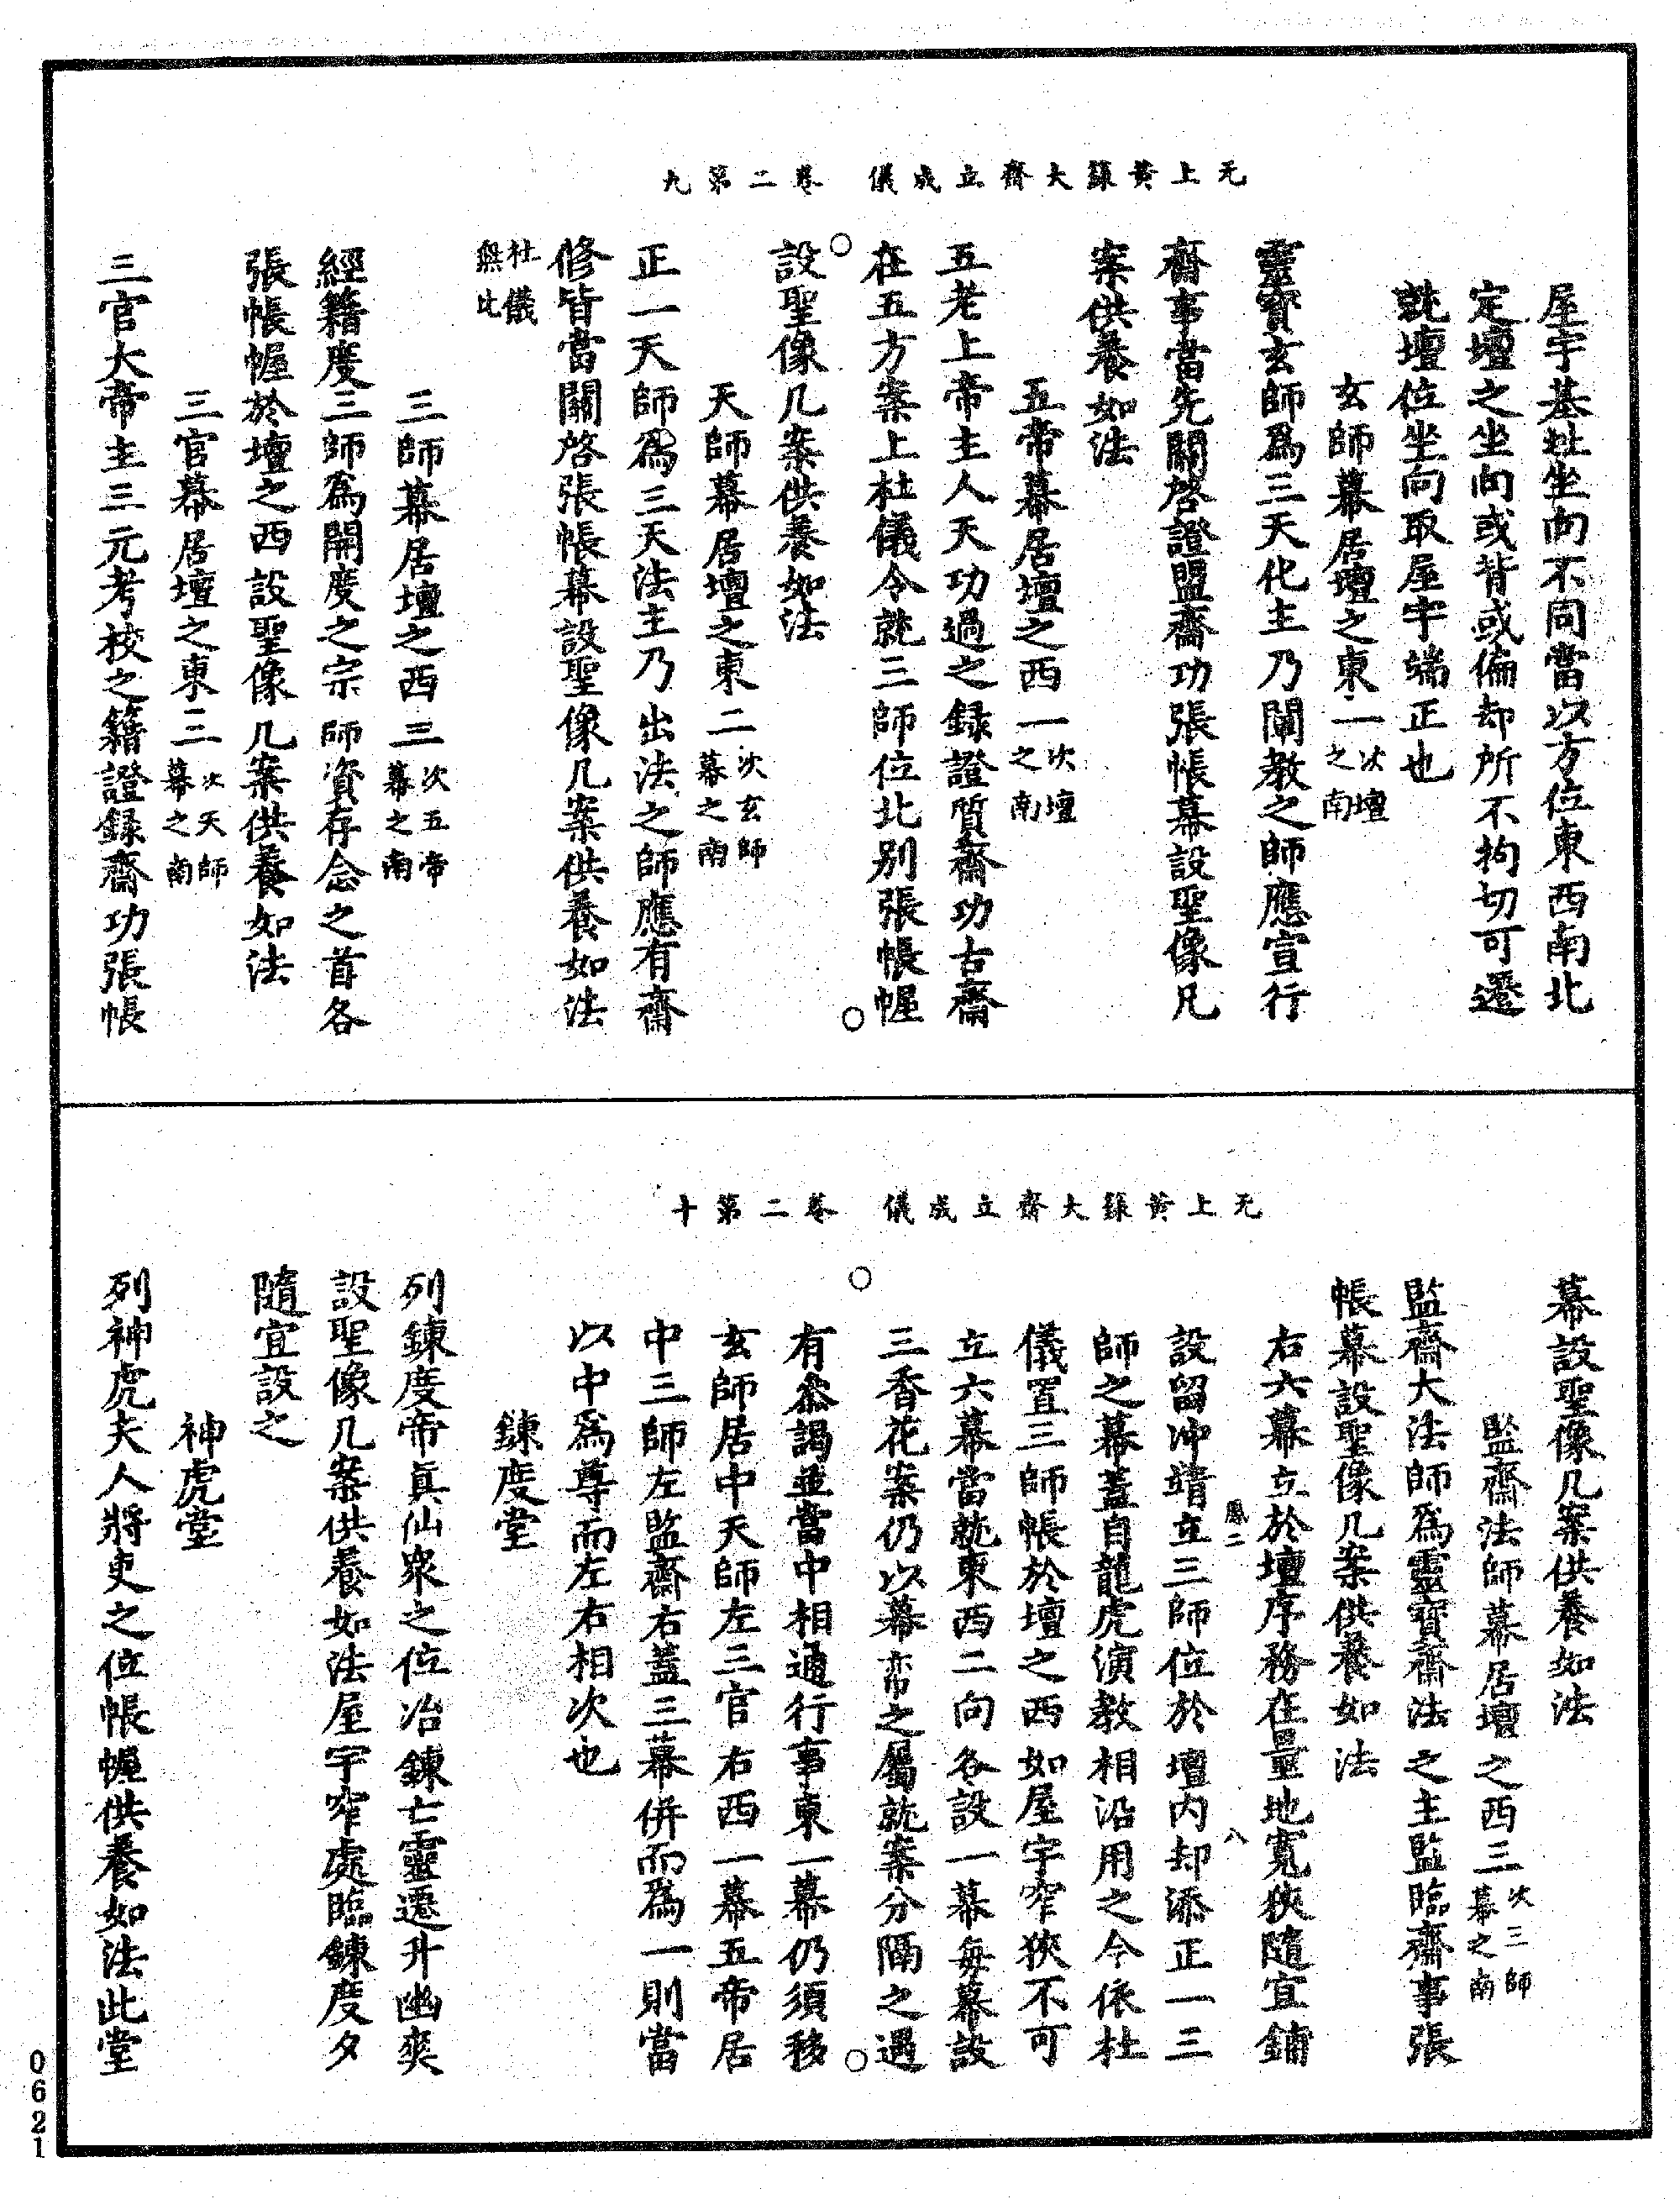 无上黃籙大齋立成儀　卷二第九
屋宇基址坐向不同當以方位東西南北
定壇之坐向或背或偏却所不拘切可遷
就壇位坐向取屋宇端正也
玄師幕居壇之東一次壇之南
靈寶玄師爲三天化主乃闡教之師應宣行
齋事當先關啓證盟齋功張帳幕設聖像几
案供養如法
五帝幕居壇之西一次壇之南
五老上帝主人天功過之録證質齋功古齋
在五方案上杜儀令就三師位北别張帳幄
設聖像几案供養如法
天師幕居壇之東二次玄師幕之南
正一天師爲三天法主乃出法之師應有齋
修皆當關啓張帳幕設聖像几案供養如法
杜儀無此
三師幕居壇之西三次五帝幕之南
經籍度三師爲開度之宗師資存念之首各
張帳幄於壇之西設聖像几案供養如法
三官幕居壇之東三次天師幕之南
三官大帝主三元考校之籍證録齋功張帳
无上黃籙大齋立成儀　卷二第十
幕設聖像几案供養如法
監齋法師幕居壇之西三次三師幕之南
監齋大法師爲靈寶齋法之主監臨齋事張
帳幕設聖像几案供養如法
右六幕立於壇序務在量地寬狹隨宜鋪
鳳二　八
設留冲靖立三師位於壇内却添正一三
師之幕蓋自龍虎演教相沿用之今依杜
儀置三師帳於壇之西如屋宇窄狹不可
立六幕當就東西二向各設一幕每幕設
三香花案仍以幕帟之屬就案分隔之遇
有叅謁並當中相通行事東一幕仍須移
玄師居中天師左三官右西一幕五帝居
中三師左監齋右蓋三幕併而爲一則當
以中爲尊而左右相次也
鍊度堂
列鍊度帝眞仙衆之位冶鍊亡靈遷升幽爽
設聖像几案供養如法屋宇窄處臨鍊度夕
隨宜設之
神虎堂
列神虎夫人將吏之位帳幄供養如法此堂
0621